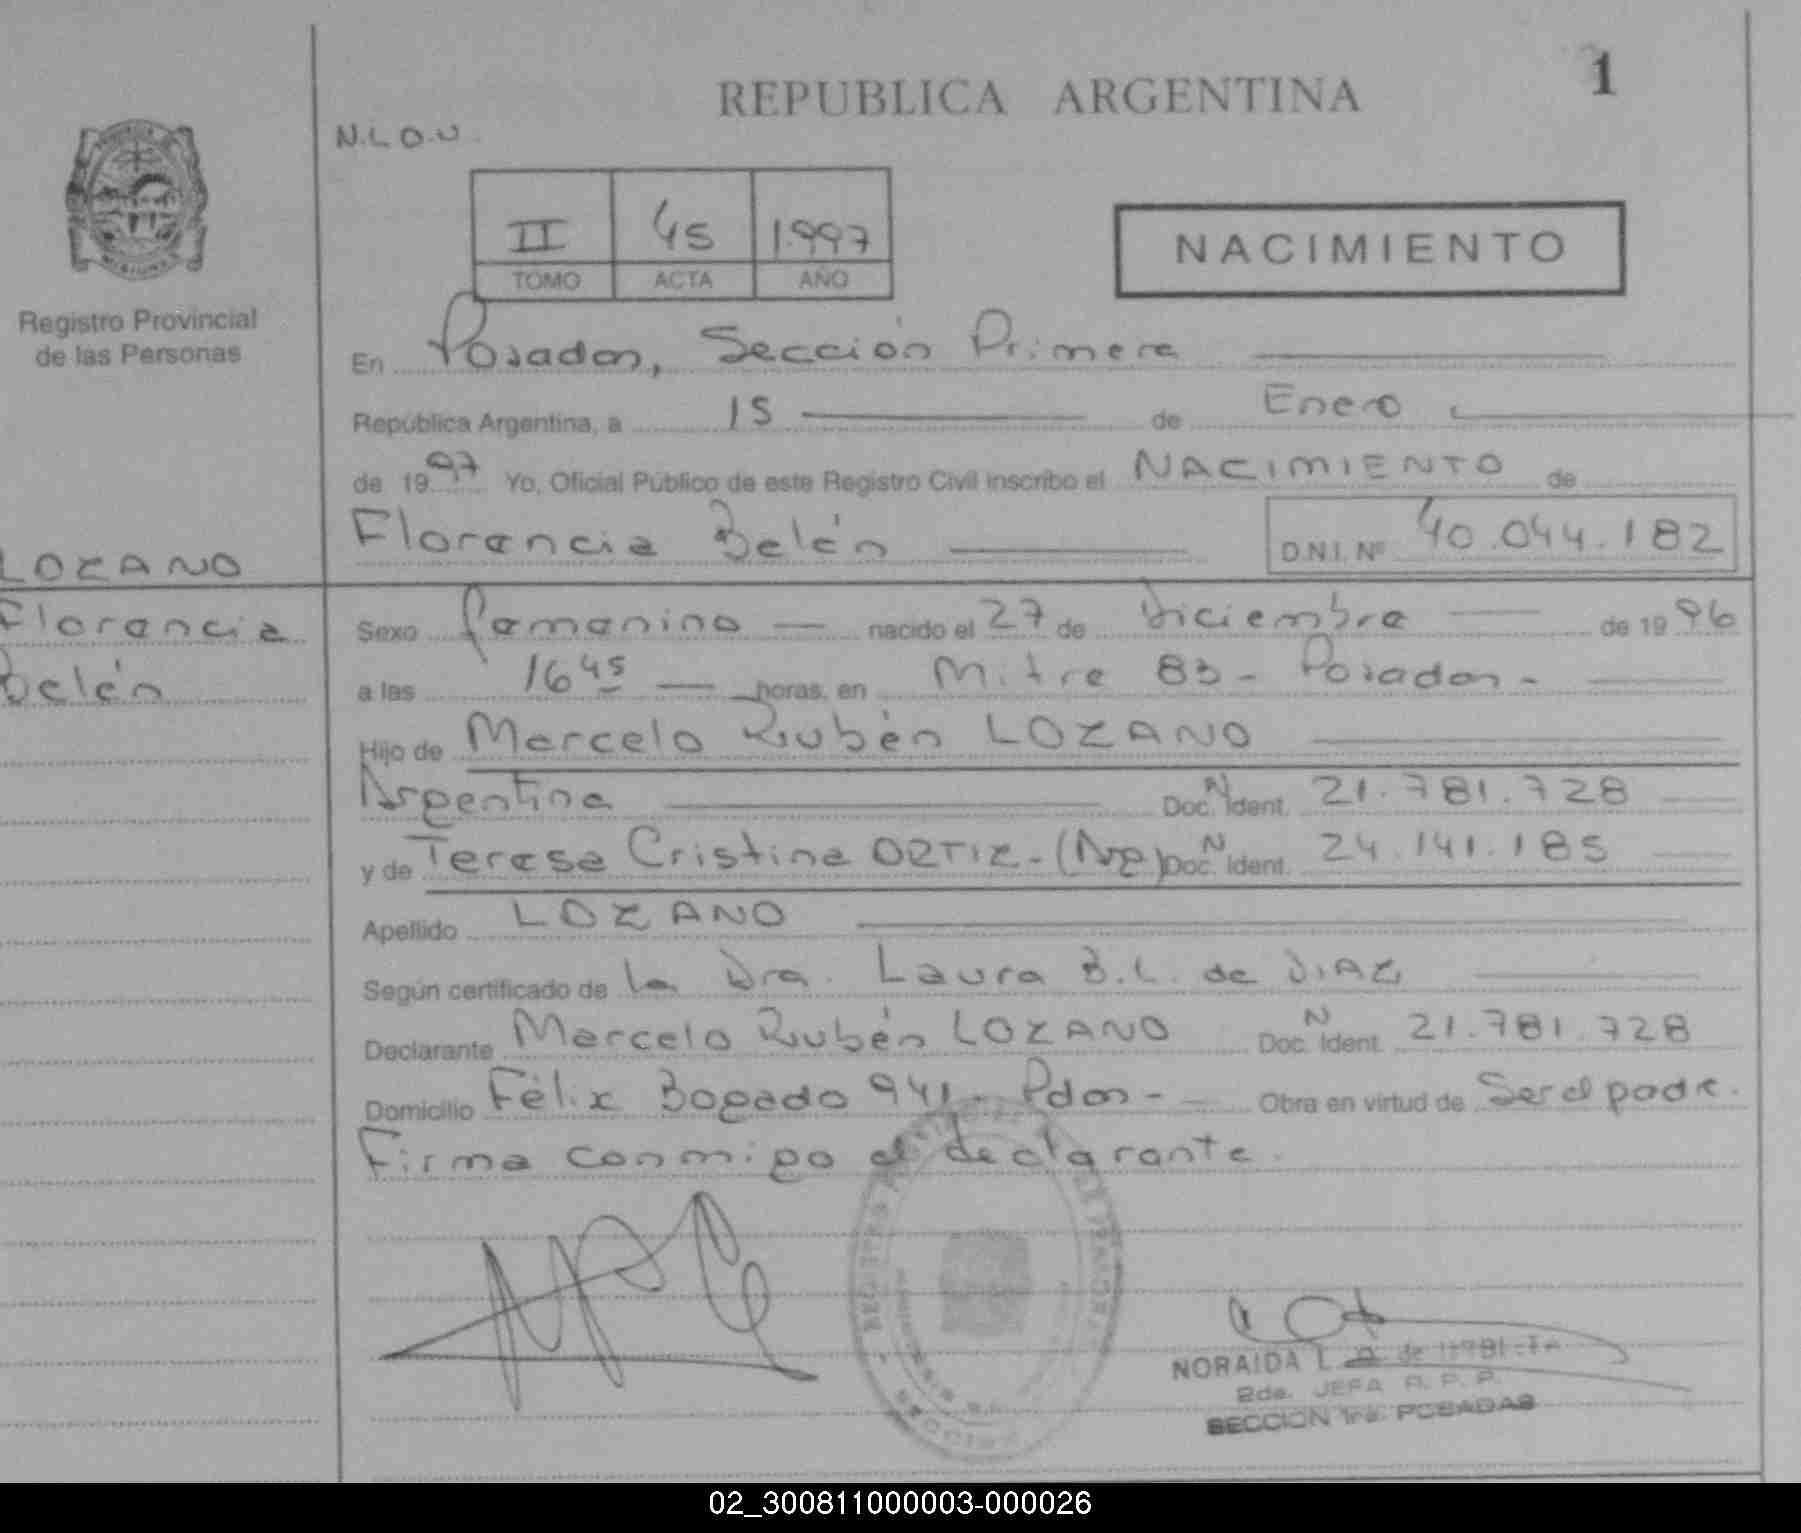 REPUBLICA ARGENTINA
1
N.L.O.U.
II 45 1.997
TOMO ACTA AÑO
NACIMIENTO
Registro Provincial
de las Personas
En Posadas, Sección Primera
República Argentina, a 15 de Enero
de 1997 Yo, Oficial Público de este Registro Civil inscribo el NACIMIENTO de
Florencia Belén D.N.I. Nº 40.044.182
LOZANO
Florencia
Belén
Sexo femenino nacido el 27 de Diciembre de 1996
a las 16 45 horas, en Mitre 83 - Posadas -
Hijo de Marcelo Rubén LOZANO
Argentina Doc. N Ident. 21.781.728
y de Teresa Cristina ORTIZ - (Arg) Doc. N Ident. 24.141.185
Apellido LOZANO
Según certificado de la Dra. Laura B.L. de DIAZ
Declarante Marcelo Rubén LOZANO Doc. N Ident. 21.781.728
Domicilio Félix Bogado 941 - Pdas - Obra en virtud de Ser el padre.
Firma conmigo el declarante.
NORAIDA L de
2da. JEFA R. P. P.
SECCION 1ra. POSADAS
02_300811000003-000026